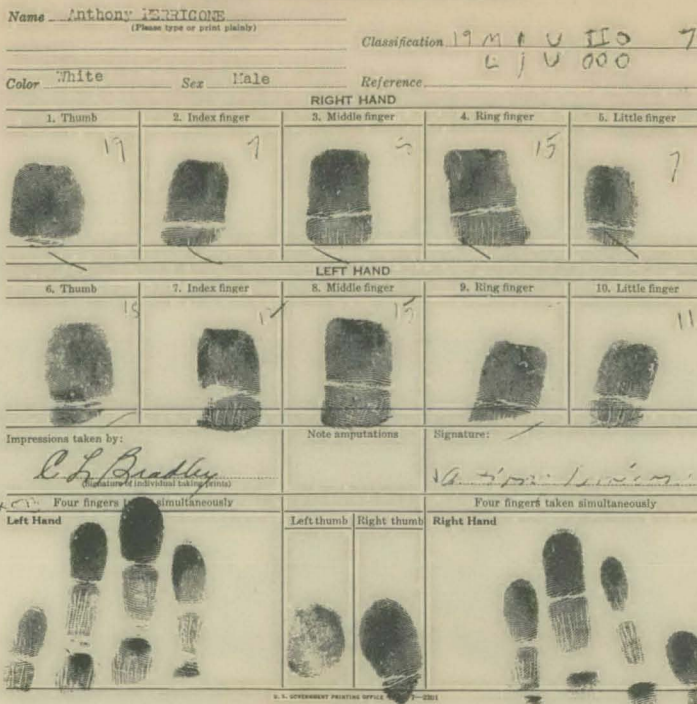 Name Anthony PERRICONE
(Please type or print plainly)
Classification 19 M 1 U IIO 7
L 1 U OOO
Color White Sex Male Reference
RIGHT HAND
1. Thumb 2. Index finger 3. Middle finger 4. Ring finger 5. Little finger
19 15 7
LEFT HAND
6. Thumb 7. Index finger 8. Middle finger 9. Ring finger 10. Little finger
15 11
Impressions taken by: Note amputations Signature:
C L Bradley
(Signature of individual taking prints)
Four fingers taken simultaneously Four fingers taken simultaneously
Left Hand Left thumb Right thumb Right Hand
U. S. GOVERNMENT PRINTING OFFICE